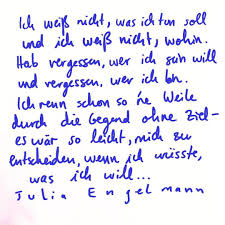 Ich weiß nicht, was ich tun soll
und ich weiß nicht, wohin.
Hab vergessen, wer ich sein will
und vergessen, wer ich bin.
Ich renn schon so ne Weile
durch die Gegend ohne Ziel-
es wär so leicht, mich zu
entscheiden, wenn ich wüsste,
was ich will...
Julia Engelmann